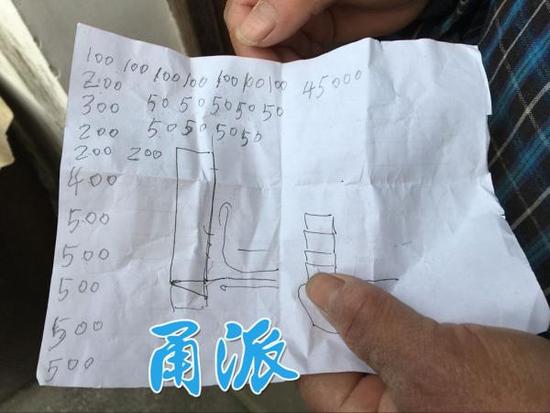 100 100 100 100 100 100 100
200 45000
300 50 50 50 50 50
200 50 50 50 50
200 200
400
500
500
500
500
500
甬派